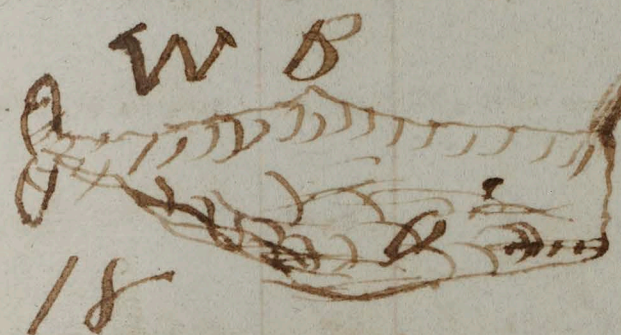 W B
18